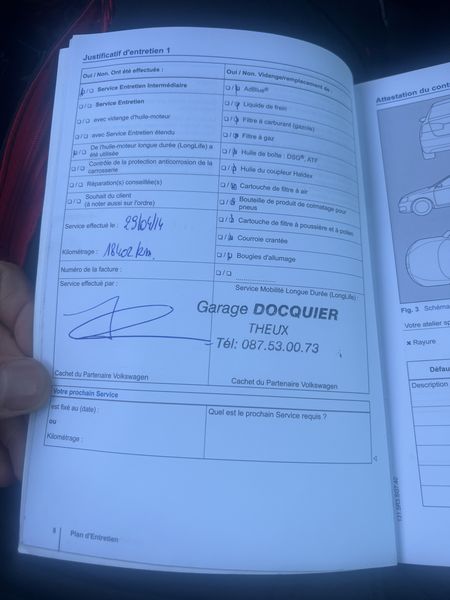 Justificatif d'entretien 1
Oui / Non. Ont été effectués :
Service Entretien Intermédiaire
Service Entretien
avec vidange d'huile-moteur
avec Service Entretien étendu
De l'huile-moteur longue durée (LongLife) a
été utilisée
Contrôle de la protection anticorrosion de la
carrosserie
Réparation(s) conseillée(s)
Souhait du client
(à noter aussi sur l'ordre)
Service effectué le : 29/04/14
Kilométrage : 18402 km.
Numéro de la facture :
Service effectué par :
Cachet du Partenaire Volkswagen
Oui / Non. Vidange/remplacement de :
AdBlue®
Liquide de frein
Filtre à carburant (gazole)
Filtre à gaz
Huile de boîte : DSG®, ATF
Huile du coupleur Haldex
Cartouche de filtre à air
Bouteille de produit de colmatage pour
pneus
Cartouche de filtre à poussière et à pollen
Courroie crantée
Bougies d'allumage
Service Mobilité Longue Durée (LongLife) :
Garage DOCQUIER
THEUX
Tél: 087.53.00.73
Cachet du Partenaire Volkswagen
Votre prochain Service
est fixé au (date) :
ou
Kilométrage :
Quel est le prochain Service requis ?
8
Plan d'Entretien
Attestation du cont
Fig. 3 Schéma
Votre atelier s
Rayure
Défau
Description